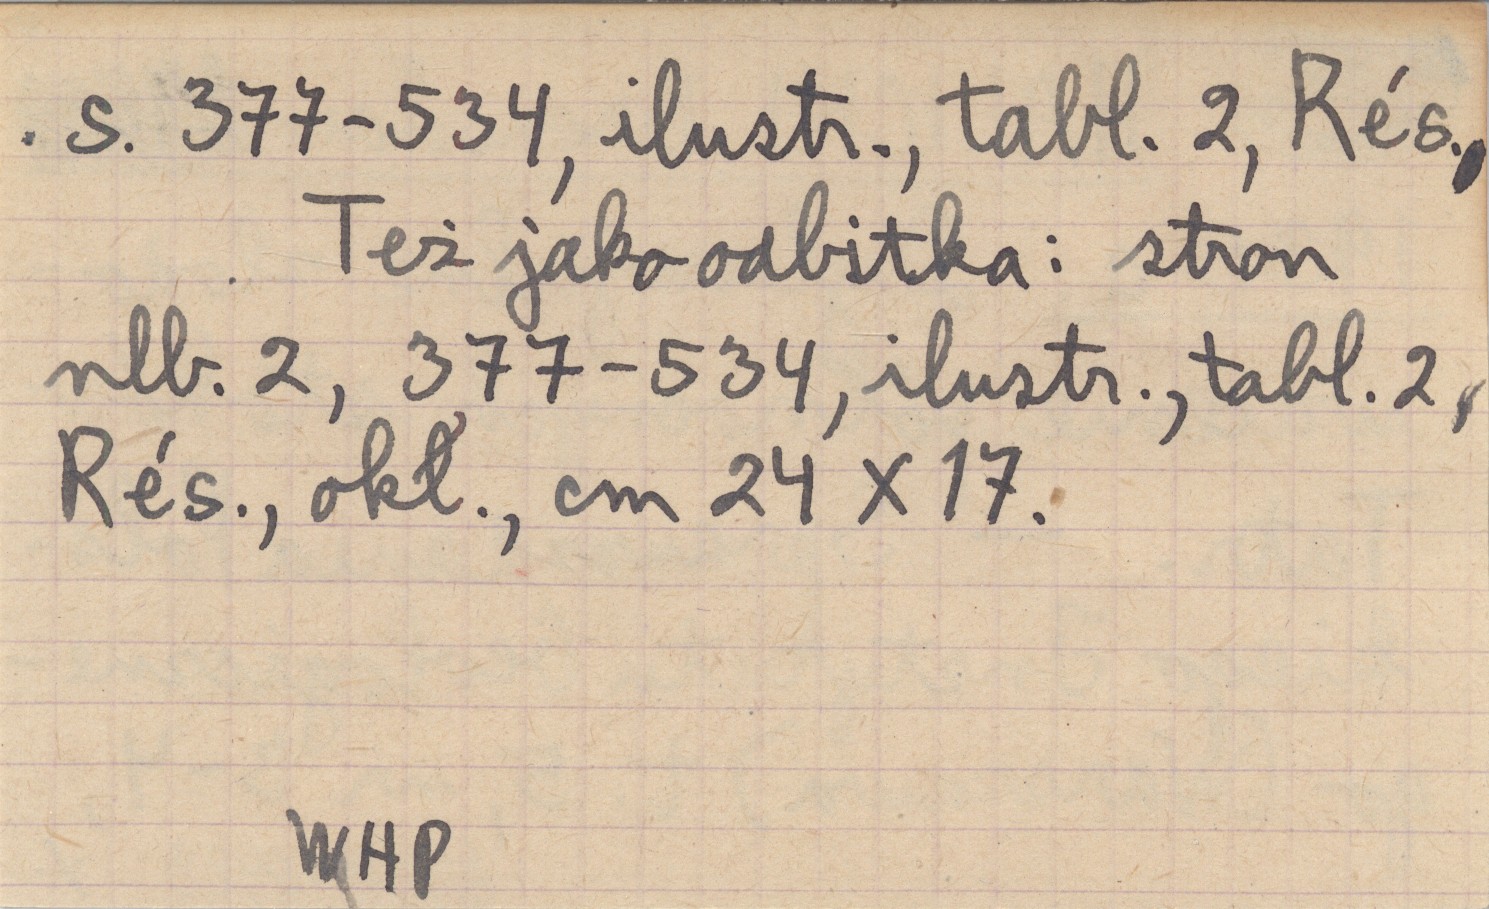 . s. 377-534, ilustr., tabl. 2, Rés.,
Też jako odbitka: stron
nlb. 2, 377-534, ilustr., tabl. 2,
Rés., okł., cm 24 X 17.
WHP